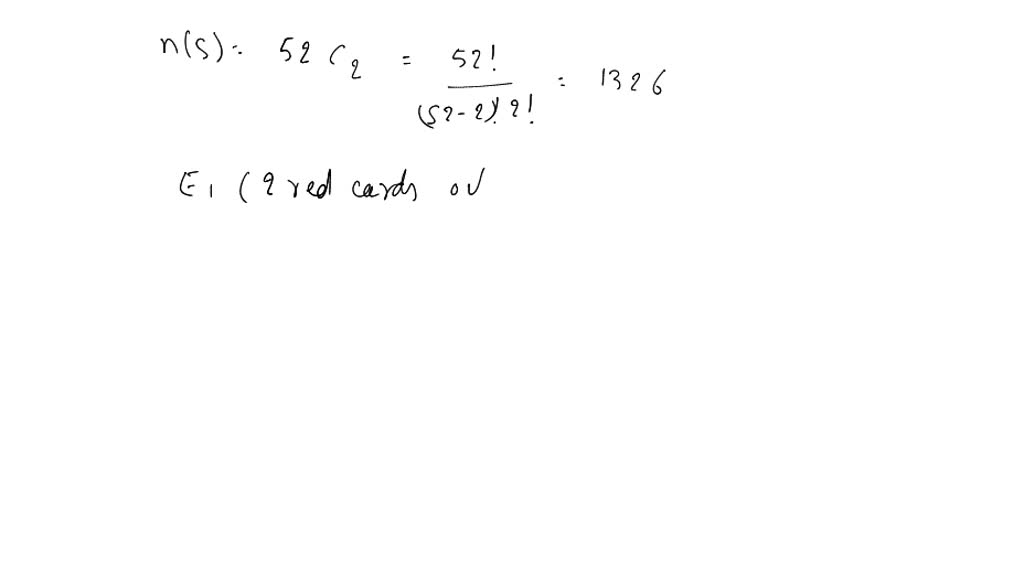 n(S) = 52 C 2 = 52! / (52-2)! 2! = 1326
E1 ( 2 red cards or